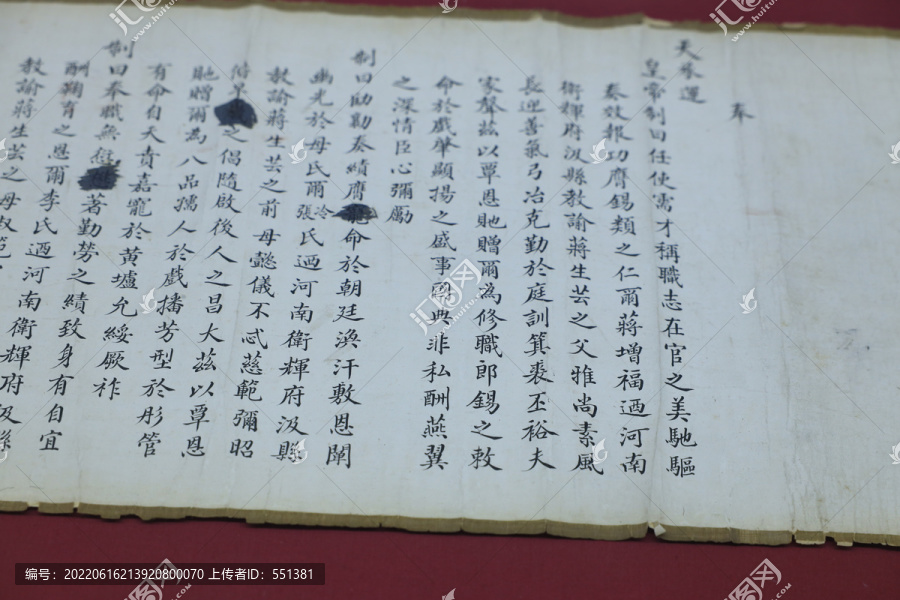 奉
天承運
皇帝制曰任使需才稱職志在官之美馳驅
奏效報功膺錫類之仁爾蔣增福迺河南
衛輝府汲縣教諭蔣生芸之父雅尚素風
長迎善氣弓冶克勤於庭訓箕裘丕裕夫
家聲茲以覃恩貤贈爾為修職郎錫之敕
命於戲肇顯揚之盛事國典非私酬燕翼
之深情臣心彌勵
制曰劻勷奏績膺命於朝廷渙汗敷恩闡
幽光於母氏爾冷張氏迺河南衛輝府汲縣
教諭蔣生芸之前母懿儀不忒慈範彌昭
之倡隨啟後人之昌大茲以覃恩
貤贈爾為八品孺人於戲播芳型於彤管
有命自天賁嘉寵於黃壚允綏厥祚
制曰奉職無愆著勤勞之績致身有自宜
酬鞠育之恩爾李氏迺河南衛輝府汲縣
教諭蔣生芸之母淑範
编号：20220616213920800070 上传者ID：551381